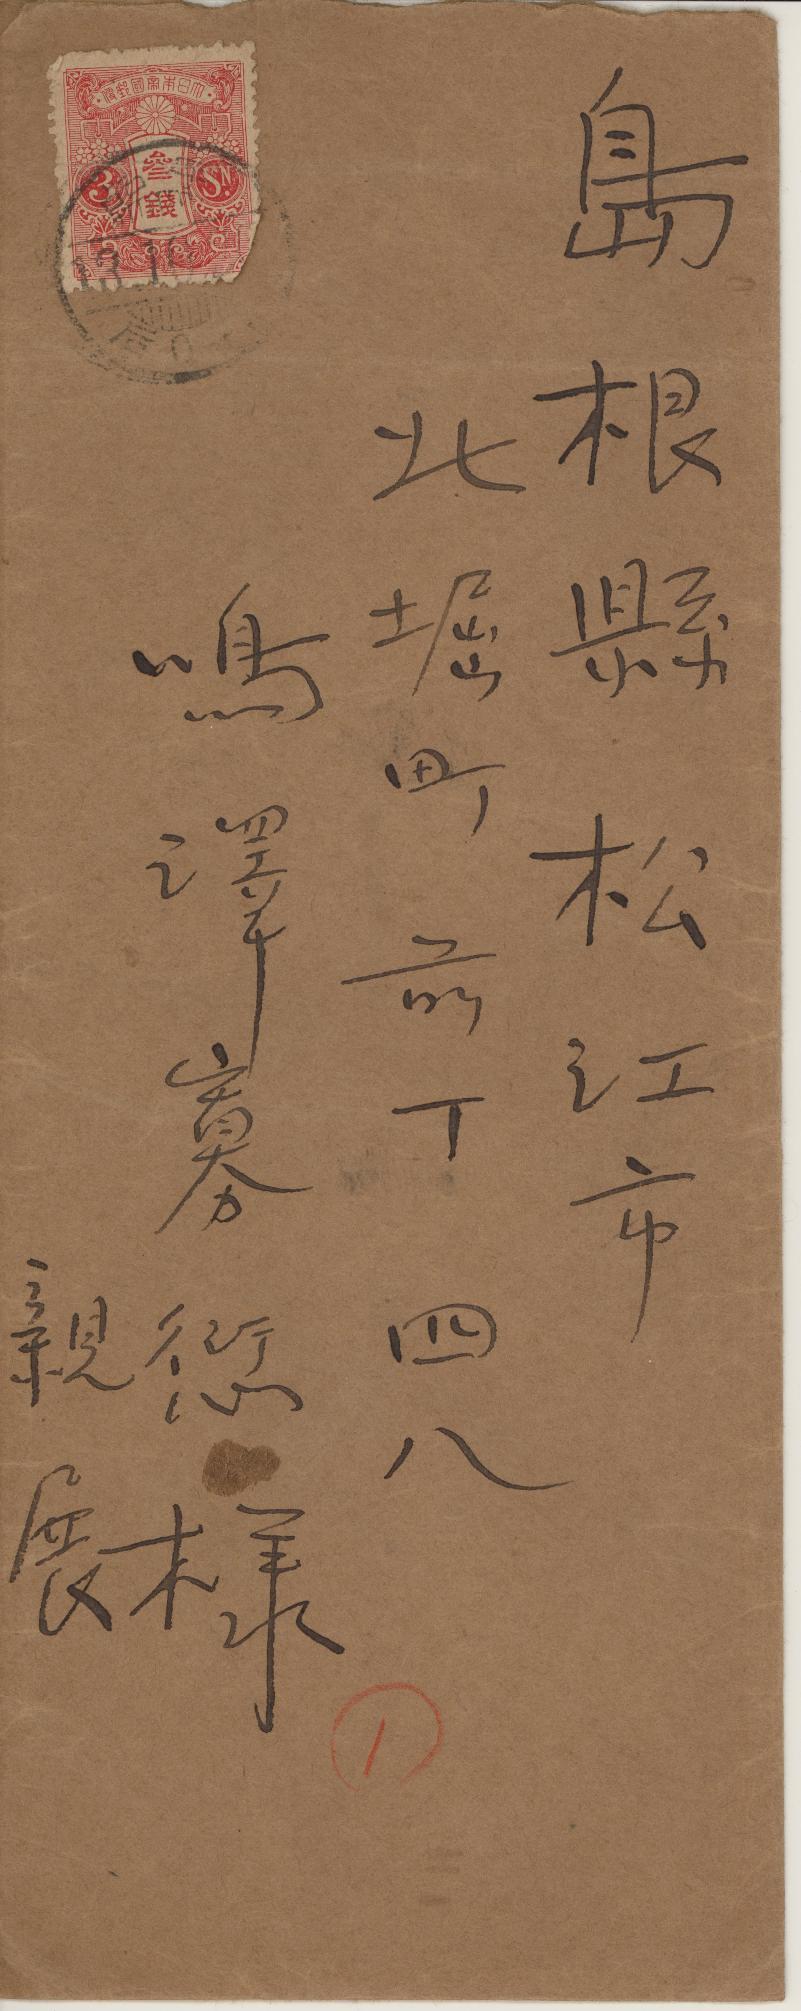 島根縣松江市
北堀町前丁四八
鳴澤寡愆様
親展
大日本帝國郵便
參錢
3 SN.
1